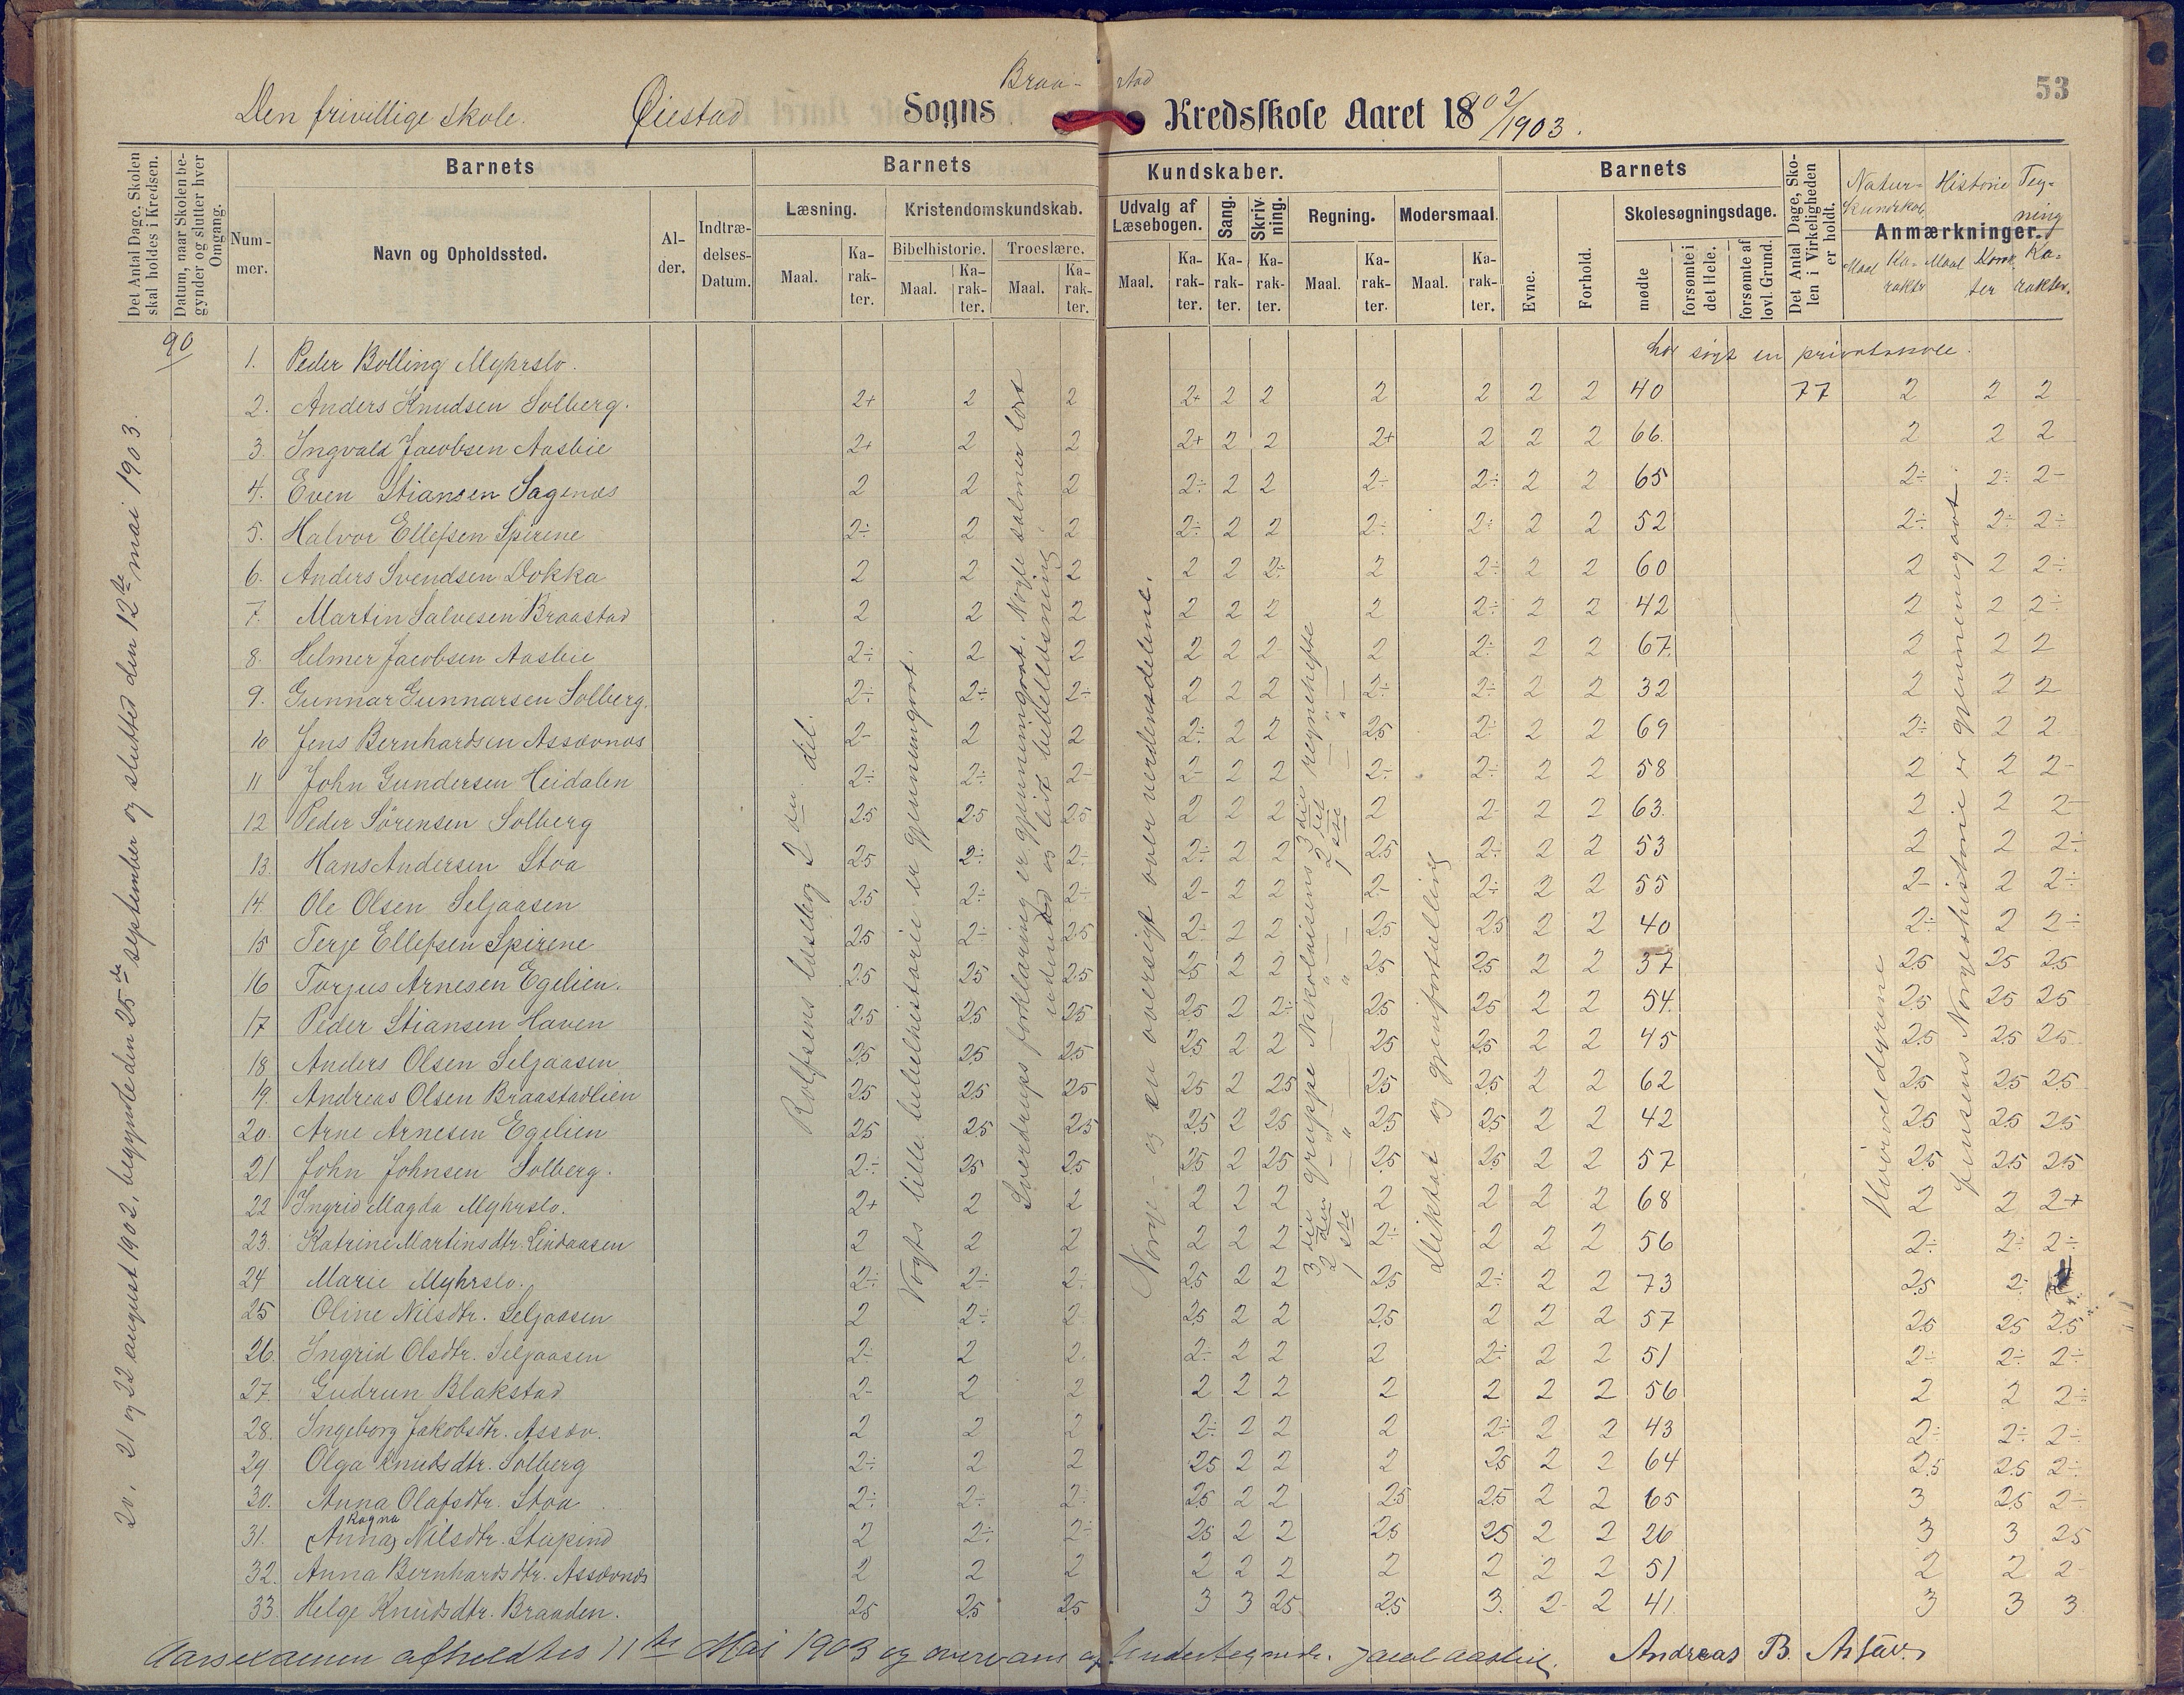 53
Den frivillige skole. Øiestad Sogns Braastad Kredsskole Aaret 1902/1903.
Det Antal Dage, Skolen skal holdes i Kredsen.
Datum, naar Skolen begynder og slutter hver Omgang.
Barnets
Nummer.
Navn og Opholdssted.
Alder.
Indtrædelses-Datum.
Barnets Kundskaber.
Læsning.
Maal.
Karakter.
Kristendomskundskab.
Bibelhistorie.
Maal.
Karakter.
Troeslære.
Maal.
Karakter.
Udvalg af Læsebogen.
Maal.
Karakter.
Sang.
Karakter.
Skrivning.
Karakter.
Regning.
Maal.
Karakter.
Modersmaal.
Maal.
Karakter.
Barnets
Evne.
Forhold.
Skolesøgningsdage.
mødte
forsømte i det Hele.
forsømte af lovl. Grund.
Det Antal Dage, Skolen i Virkeligheden er holdt.
Anmærkninger.
Naturkundskab Historie Tegning
Maal Karakter Maal Karakter Karakter.
90
20, 21 og 22 august 1902, begyndte den 25de september og sluttet den 12te mai 1903.
Rolfsens læsebog 2den del.
Vogts lille bibelhistorie er gjennemgaat.
Sverdrups forklaring er gjennemgaat. Nogle salmer lært udenad og lidt bibellæsning
Norge og en oversigt over verdensdelene.
3die gruppe Nikolaisens 3die regnehefte
2den — " — 2det — " —
1ste — " — 1ste — " —
Diktat og gjenfortælling
Hvirveldyrene
Jensens Norgeshistorie er gjennemgaat.
1. Peder Bolling Myhrslo. har søgt en privatskole.
2. Anders Knudsen Solberg. 2+ 2 2 2+ 2 2 2 2 2 2 40 77 2 2 2
3. Ingvald Jacobsen Aasbie 2+ 2 2 2+ 2 2 2+ 2 2 2 66. 2 2 2
4. Even Stiansen Sagenæs 2 2 2 2÷ 2 2 2÷ 2÷ 2 2 65 2÷ 2÷ 2-
5. Halvor Ellefsen Spirene 2÷ 2 2 2÷ 2 2 2÷ 2÷ 2 2 52 2÷ 2÷ 2÷
6. Anders Svendsen Dokka 2 2 2 2 2 2÷ 2 2÷ 2 2 60 2 2 2÷
7. Martin Salvesen Braastad 2 2 2 2 2 2 2 2÷ 2 2 42 2 2 2÷
8. Helmer Jacobsen Aasbie 2÷ 2 2 2 2 2 2 2÷ 2 2 67. 2 2 2
9. Gunnar Gunnarsen Solberg. 2÷ 2÷ 2÷ 2 2 2 2÷ 2÷ 2 2 32 2 2 2
10 Jens Bernhardsen Assævnæs 2- 2 2 2÷ 2 2 25 2÷ 2 2 69 2÷ 2 2
11 John Gundersen Heidalen 2÷ 2÷ 2- 2- 2 2 2÷ 2÷ 2 2 58 2 2 2-
12 Peder Sørensen Solberg 25 25 25 2 2 2 2 2- 2 2 63. 2 2 2-
13. Hans Andersen Stoa 25 2÷ 2÷ 2÷ 2 2 25 2÷ 2 2 53 2 2 2÷
14. Ole Olsen Seljaasen 25 2÷ 2÷ 2- 2 2 2- 2÷ 2 2 55 2- 2 2÷
15 Terje Ellefsen Spirene 25 2÷ 25 2÷ 2 2 25 25 2 2 40 2÷ 2 2÷
16 Torjus Arnesen Egelien. 25 25 25 25 2 2 25 25 2 2 37 25 25 25
17 Peder Stiansen Haven 25 25 25 25 2 2÷ 25 25 2 2 54. 25 25 25
18 Anders Olsen Seljaasen 25 25 25 25 2 2 25 25 2 2 45 25 25 25
19. Andreas Olsen Braastadlien 25 25 25 25 2 25 25 25 2 2 62 25 25 25
20. Arne Arnesen Egelien 25 25 25 25 2 25 25 25 2 2 42 25 25 25
21 John Johnsen Solberg. 2÷ 25 25 25 2 25 25 25 2 2 57 25 25 25
22 Ingrid Magda Myhrslo. 2+ 2 2 2 2 2 2 2 2 2 68 2 2 2+
23. Katrine Martinsdtr. Lindaasen 2 2 2 2 2 2 2÷ 2 2 2 56 2÷ 2÷ 2÷
24 Marie Myhrslo. 2÷ 2÷ 2÷ 25 2 2 25 2÷ 2 2 73 25 2
25 Oline Nilsdtr. Seljaasen 2 2÷ 2- 25 2 2 25 2 2 2 57 25 25 25
26. Ingrid Olsdtr. Seljaasen 2÷ 2 2. 2÷ 2 2 2 2÷ 2 2 51 2÷ 2÷ 2÷
27. Gudrun Blakstad 2- 2 2 2 2 2 2 2 2 2 56 2 2 2÷
28. Ingeborg Jakobsdtr. Assæv. 2 2 2 2÷ 2 2 2 2÷ 2 2 43 2÷ 2÷ 2÷
29 Olga Knudsdtr. Solberg 2÷ 2 2 25 2 2 2 25 2 2 64 25 25 2÷
30. Anna Olafsdtr. Stoa 2÷ 2÷ 2÷ 25 2 2 25 25 2 2 65 3 25 2÷
31. (Anna) Ragna Nilsdtr. Stupind 2 2÷ 2÷ 25 2 2 25 25 2 2 26 3 3 25
32. Anna Bernhardsdtr. Assævnæs 2 2 2 2 2 2 2 2 2 2 51 2 2 2-
33. Helge Knudsdtr. Braaden. 25 25 25 3 3 25 25 3. 2- 2 41 3 3 3
Aarsexamen afholdtes 11te Mai 1903 og overvars af Undertegnede. Jacob Aasbie. Andreas B. Assæv.